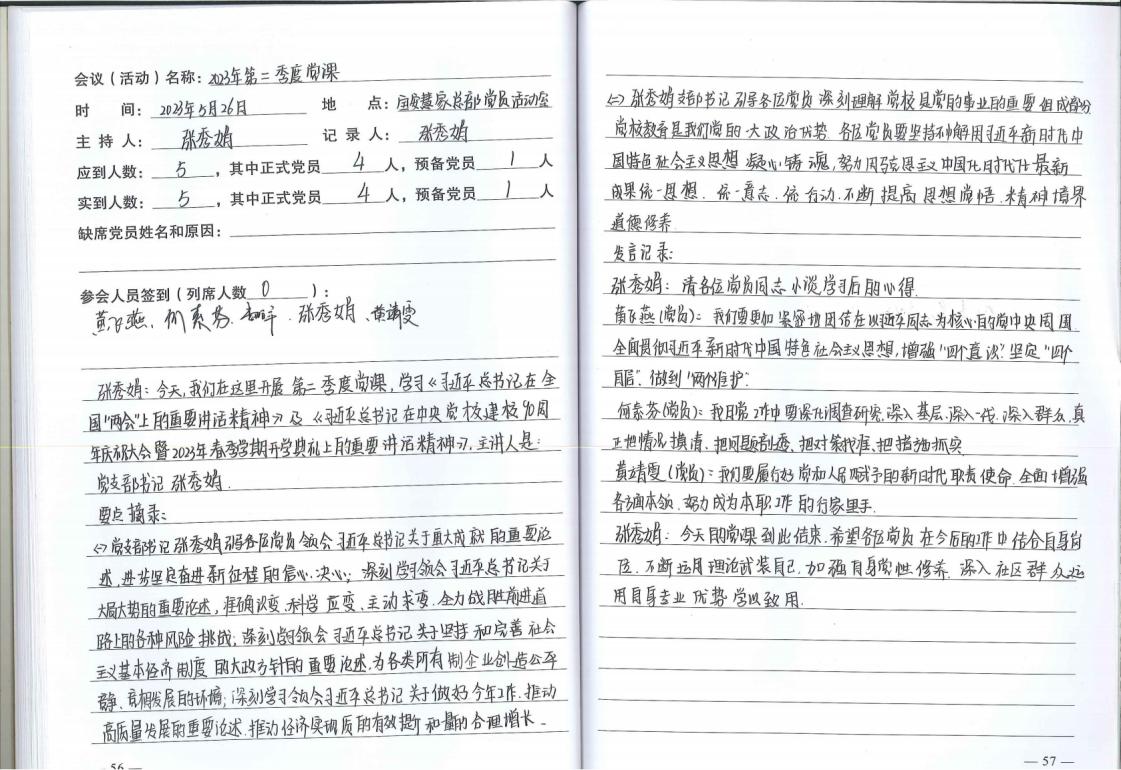 会议（活动）名称：2023年第二季度党课
时 间：2023年5月26日 地 点：宜安慧家总部党员活动室
主 持 人：张秀娟 记 录 人：张秀娟
应到人数：5，其中正式党员 4 人，预备党员 1 人
实到人数：5，其中正式党员 4 人，预备党员 1 人
缺席党员姓名和原因：
参会人员签到（列席人数 0 ）：
黄飞燕、何素芬、张秀娟、黄靖雯
张秀娟：今天，我们在这里开展第二季度党课，学习《习近平总书记在全
国"两会"上的重要讲话精神》及《习近平总书记在中央党校建校90周
年庆祝大会暨2023年春季学期开学典礼上的重要讲话精神》，主讲人是：
党支部书记张秀娟.
要点摘录：
<一>党支部书记张秀娟引导各位党员领会习近平总书记关于重大成就的重要论
述，进步坚定奋进新征程的信心、决心；深刻学习领会习近平总书记关于
大局大势的重要论述，准确识变、科学应变、主动求变，全力战胜前进道
路上的各种风险挑战；深刻学习领会习近平总书记关于坚持和完善社会
主义基本经济制度的大政方针的重要论述，为各类所有制企业创造公平
竞争、竞相发展的环境；深刻学习领会习近平总书记关于做好今年工作、推动
高质量发展的重要论述，推动经济实现质的有效提升和量的合理增长.
— 56 —
<二>张秀娟支部书记引导各位党员深刻理解党校是党的事业的重要组成部分
党校教育是我们党的一大政治优势.各位党员要坚持不懈用习近平新时代中
国特色社会主义思想凝心铸魂，努力用马克思主义中国化时代化最新
成果统一思想、统一意志、统一行动.不断提高思想觉悟、精神境界
道德修养
发言记录：
张秀娟：请各位党员同志小谈学习后的心得.
黄飞燕(党员)：我们要更加紧密地团结在以习近平同志为核心的党中央周围
全面贯彻习近平新时代中国特色社会主义思想，增强"四个意识"坚定"四个
自信"、做到"两个维护".
何素芬(党员)：我日常工作中要深化调查研究，深入基层、深入一线、深入群众，真
正把情况摸清、把问题剖透、把对策找准、把措施抓实
黄靖雯(党员)：我们要履行好党和人民赋予的新时代职责使命.全面增强
各方面本领.努力成为本职工作的行家里手.
张秀娟：今天的党课到此结束.希望各位党员在今后的工作中结合自身岗
位.不断运用理论武装自己.加强自身党性修养.深入社区群众运
用自身专业优势学以致用.
— 57 —